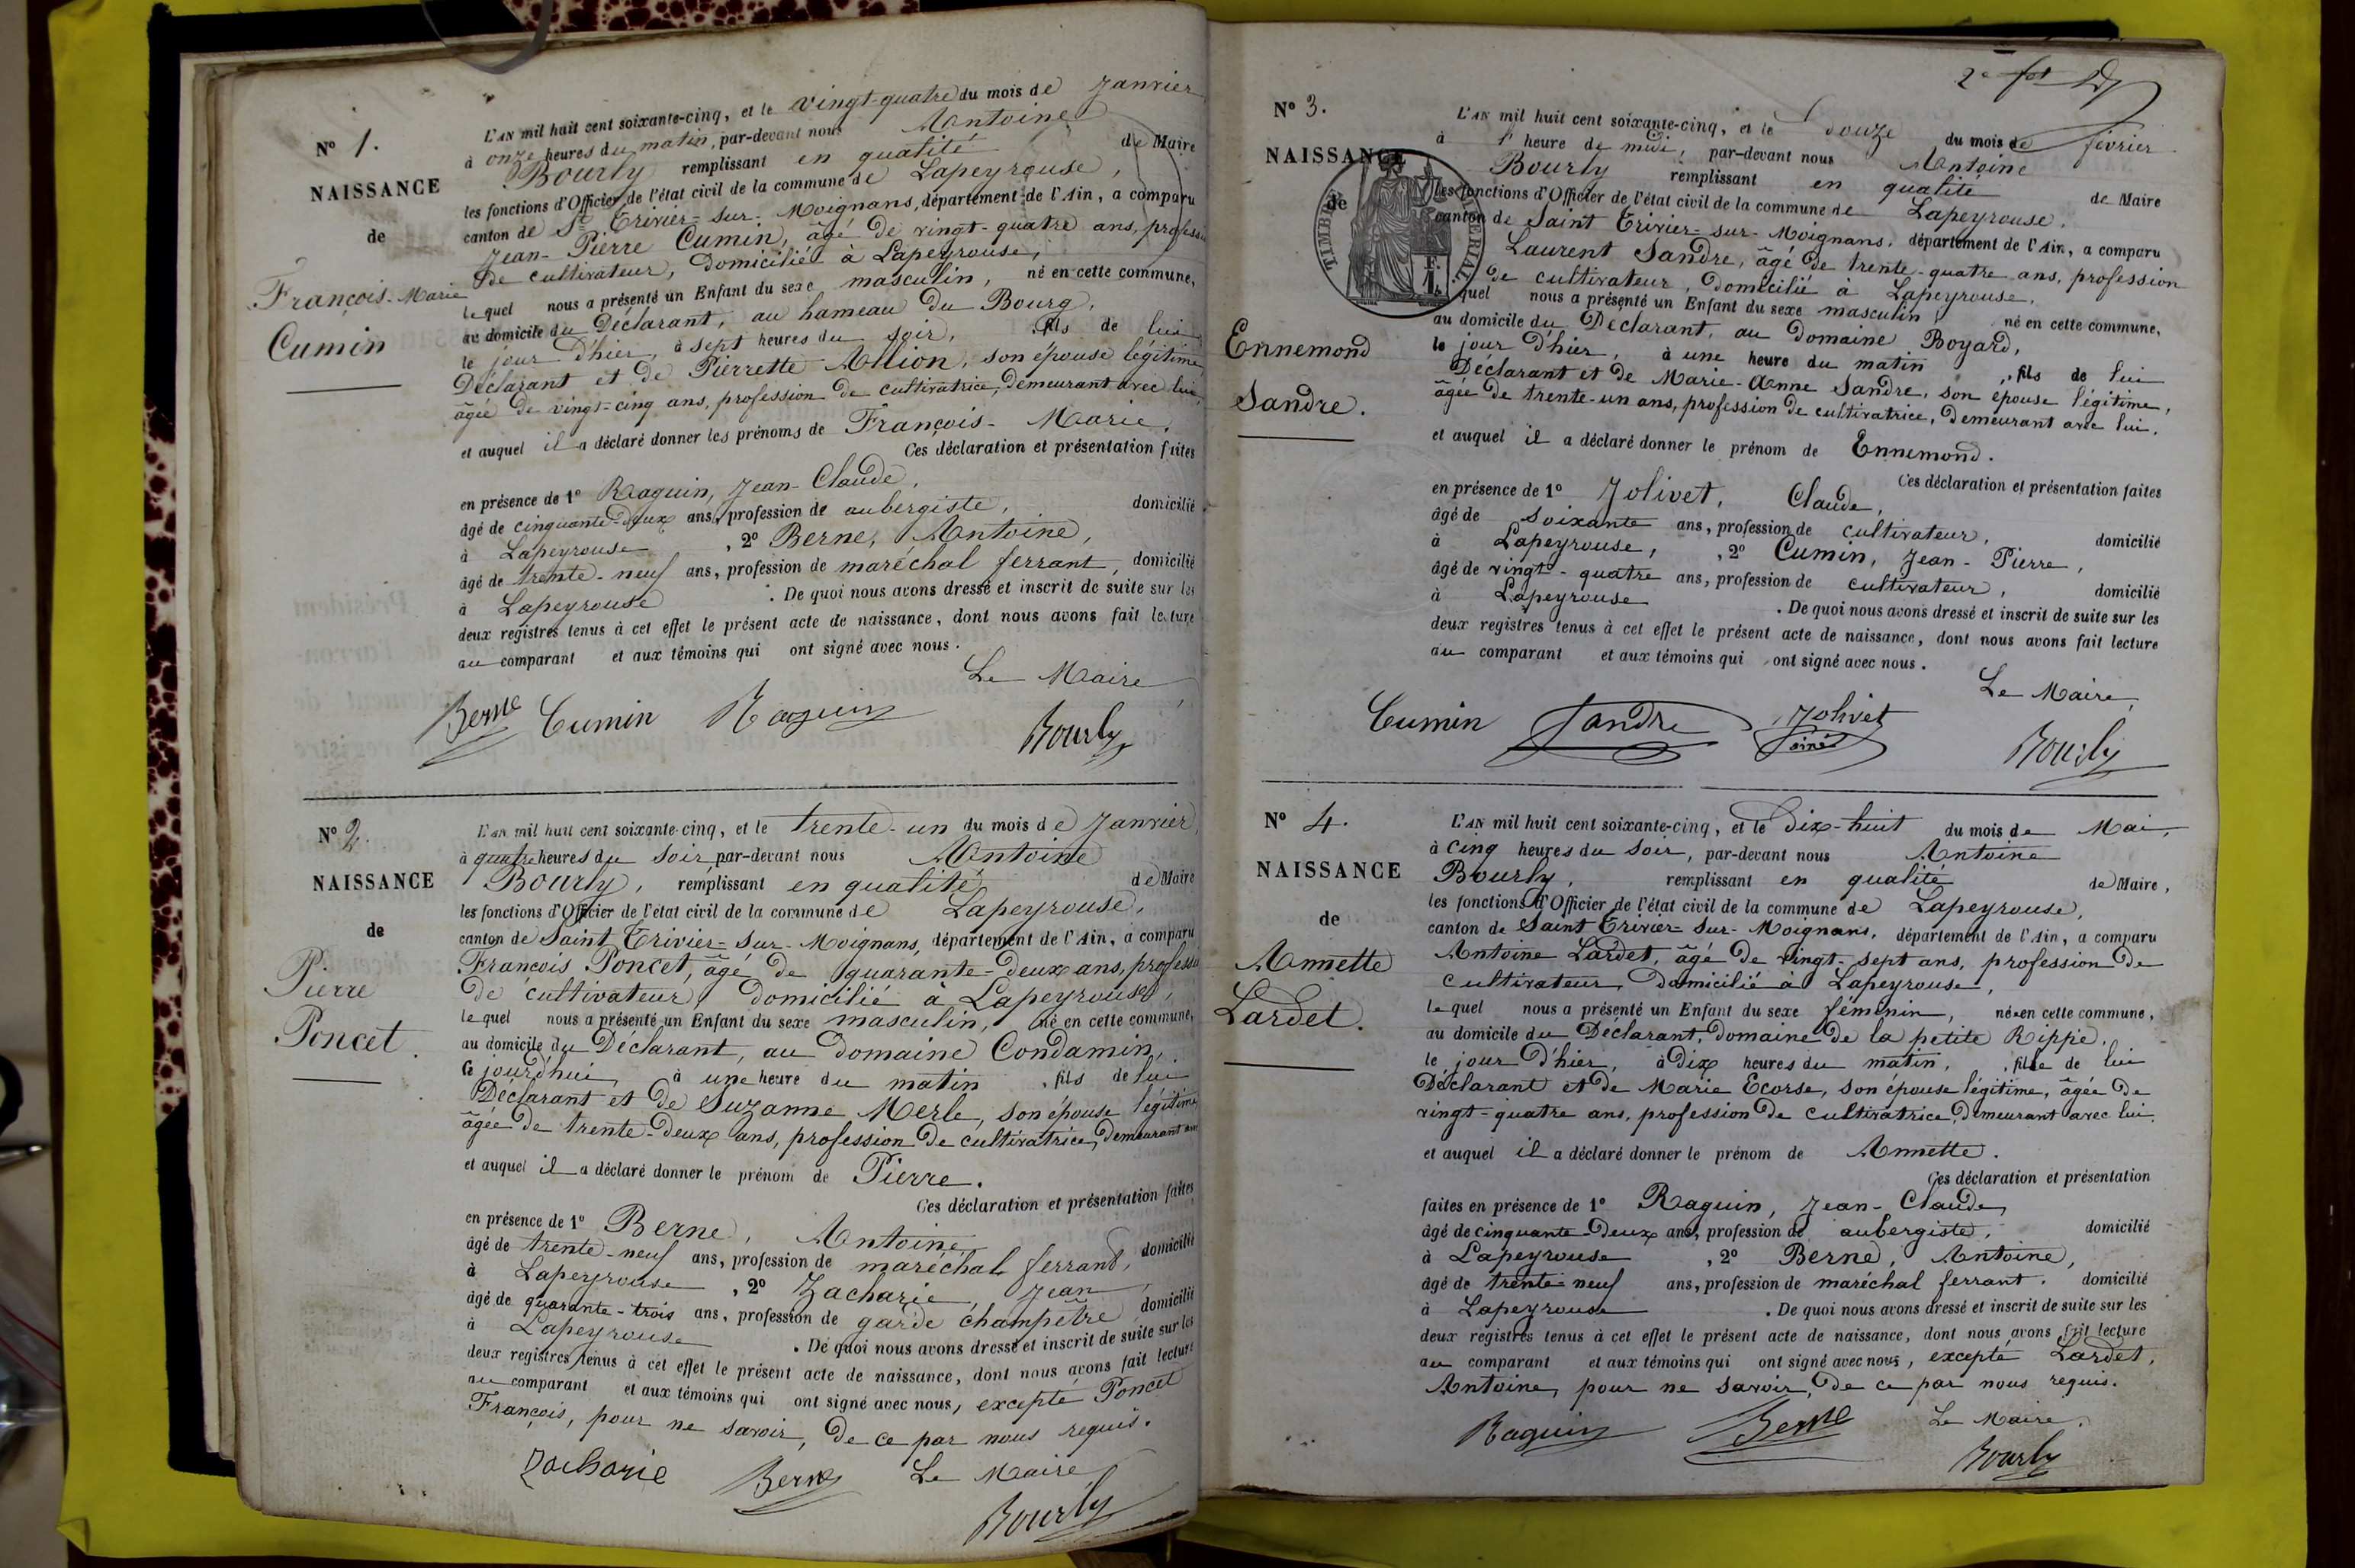 N° 1.
NAISSANCE
de
François-Marie
Cumin
L'AN mil huit cent soixante-cinq, et le vingt-quatre du mois de Janvier
à onze heures du matin, par-devant nous Antoine
Bourly remplissant en qualité de Maire
les fonctions d'Officier de l'état civil de la commune de Lapeyrouse,
canton de St Trivier-sur-Moignans, département de l'Ain, a comparu
Jean-Pierre Cumin, âgé de vingt-quatre ans, profession
de cultivateur, domicilié à Lapeyrouse,
lequel nous a présenté un Enfant du sexe masculin, né en cette commune,
au domicile du Déclarant, au hameau du Bourg,
le jour d'hier, à sept heures du soir, fils de lui
Déclarant et de Pierrette Allion, son épouse légitime
âgée de vingt-cinq ans, profession de cultivatrice, demeurant avec lui,
et auquel il a déclaré donner les prénoms de François-Marie.
Ces déclaration et présentation faites
en présence de 1° Raguin, Jean-Claude,
âgé de cinquante-deux ans, profession de aubergiste, domicilié
à Lapeyrouse, 2° Berne, Antoine,
âgé de trente-neuf ans, profession de maréchal ferrant, domicilié
à Lapeyrouse. De quoi nous avons dressé et inscrit de suite sur les
deux registres tenus à cet effet le présent acte de naissance, dont nous avons fait lecture
au comparant et aux témoins qui ont signé avec nous.
Le Maire
Berne Cumin Raguin
Bourly
N° 2.
NAISSANCE
de
Pierre
Poncet.
L'AN mil huit cent soixante-cinq, et le trente-un du mois de Janvier,
à quatre heures du soir par-devant nous Antoine
Bourly, remplissant en qualité de Maire
les fonctions d'Officier de l'état civil de la commune de Lapeyrouse,
canton de Saint Trivier-sur-Moignans, département de l'Ain, a comparu
François Poncet, âgé de quarante-deux ans, profession
de cultivateur, domicilié à Lapeyrouse,
lequel nous a présenté un Enfant du sexe masculin, né en cette commune,
au domicile du Déclarant, au domaine Condamin,
ce jourd'hui, à une heure du matin, fils de lui
Déclarant et de Suzanne Merle, son épouse légitime
âgée de trente-deux ans, profession de cultivatrice, demeurant avec
et auquel il a déclaré donner le prénom de Pierre.
Ces déclaration et présentation faites
en présence de 1° Berne, Antoine,
âgé de trente-neuf ans, profession de maréchal ferrand, domicilié
à Lapeyrouse, 2° Zacharie, Jean
âgé de quarante-trois ans, profession de garde champêtre domicilié
à Lapeyrouse. De quoi nous avons dressé et inscrit de suite sur les
deux registres tenus à cet effet le présent acte de naissance, dont nous avons fait lecture
au comparant et aux témoins qui ont signé avec nous, excepté Poncet
François, pour ne savoir, de ce par nous requis.
Zacharie Berne Le Maire
Bourly
2e
N° 3.
NAISSANCE
de
TIMBRE IMPÉRIAL
Ennemond
Sandre.
L'AN mil huit cent soixante-cinq, et le douze du mois de février
à 1 heure de midi, par-devant nous Antoine
Bourly remplissant en qualité de Maire
les fonctions d'Officier de l'état civil de la commune de Lapeyrouse,
canton de Saint Trivier-sur-Moignans, département de l'Ain, a comparu
Laurent Sandre, âgé de trente-quatre ans, profession
de cultivateur, domicilié à Lapeyrouse,
quel nous a présenté un Enfant du sexe masculin, né en cette commune,
au domicile du Déclarant, au domaine Boyard,
le jour d'hier, à une heure du matin, fils de lui
Déclarant et de Marie-Anne Sandre, son épouse légitime,
âgée de trente-un ans, profession de cultivatrice, demeurant avec lui.
et auquel il a déclaré donner le prénom de Ennemond.
Ces déclaration et présentation faites
en présence de 1° Jolivet, Claude,
âgé de soixante ans, profession de cultivateur, domicilié
à Lapeyrouse, 2° Cumin, Jean-Pierre,
âgé de vingt-quatre ans, profession de cultivateur, domicilié
à Lapeyrouse. De quoi nous avons dressé et inscrit de suite sur les
deux registres tenus à cet effet le présent acte de naissance, dont nous avons fait lecture
au comparant et aux témoins qui ont signé avec nous.
Le Maire,
Cumin Sandre Jolivet
ainé
Bourly
N° 4.
NAISSANCE
de
Annette
Lardet.
L'AN mil huit cent soixante-cinq, et le dix-huit du mois de Mai,
à cinq heures du soir, par-devant nous Antoine
Bourly, remplissant en qualité de Maire,
les fonctions d'Officier de l'état civil de la commune de Lapeyrouse,
canton de Saint Trivier-sur-Moignans, département de l'Ain, a comparu
Antoine Lardet, âgé de vingt-sept ans, profession de
cultivateur, domicilié à Lapeyrouse,
lequel nous a présenté un Enfant du sexe féminin, née en cette commune,
au domicile du Déclarant, domaine de la petite Rippe,
le jour d'hier, à dix heures du matin, fille de lui
Déclarant et de Marie Ecorse, son épouse légitime, âgée de
vingt-quatre ans, profession de cultivatrice, demeurant avec lui.
et auquel il a déclaré donner le prénom de Annette.
Ces déclaration et présentation
faites en présence de 1° Raguin, Jean-Claude,
âgé de cinquante-deux ans, profession de aubergiste, domicilié
à Lapeyrouse, 2° Berne, Antoine,
âgé de trente-neuf ans, profession de maréchal ferrant, domicilié
à Lapeyrouse. De quoi nous avons dressé et inscrit de suite sur les
deux registres tenus à cet effet le présent acte de naissance, dont nous avons fait lecture
au comparant et aux témoins qui ont signé avec nous, excepté Lardet,
Antoine, pour ne savoir, de ce par nous requis.
Raguin Berne Le Maire,
Bourly